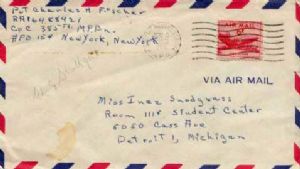 Pvt Charles H. Fischer
Co C 385th M.P. Bn.
APO 154 New York, New York
AIR MAIL
VIA AIR MAIL
Miss Inez Snodgrass
Room 111 Student Center
5050 Cass Ave
Detroit 1, Michigan